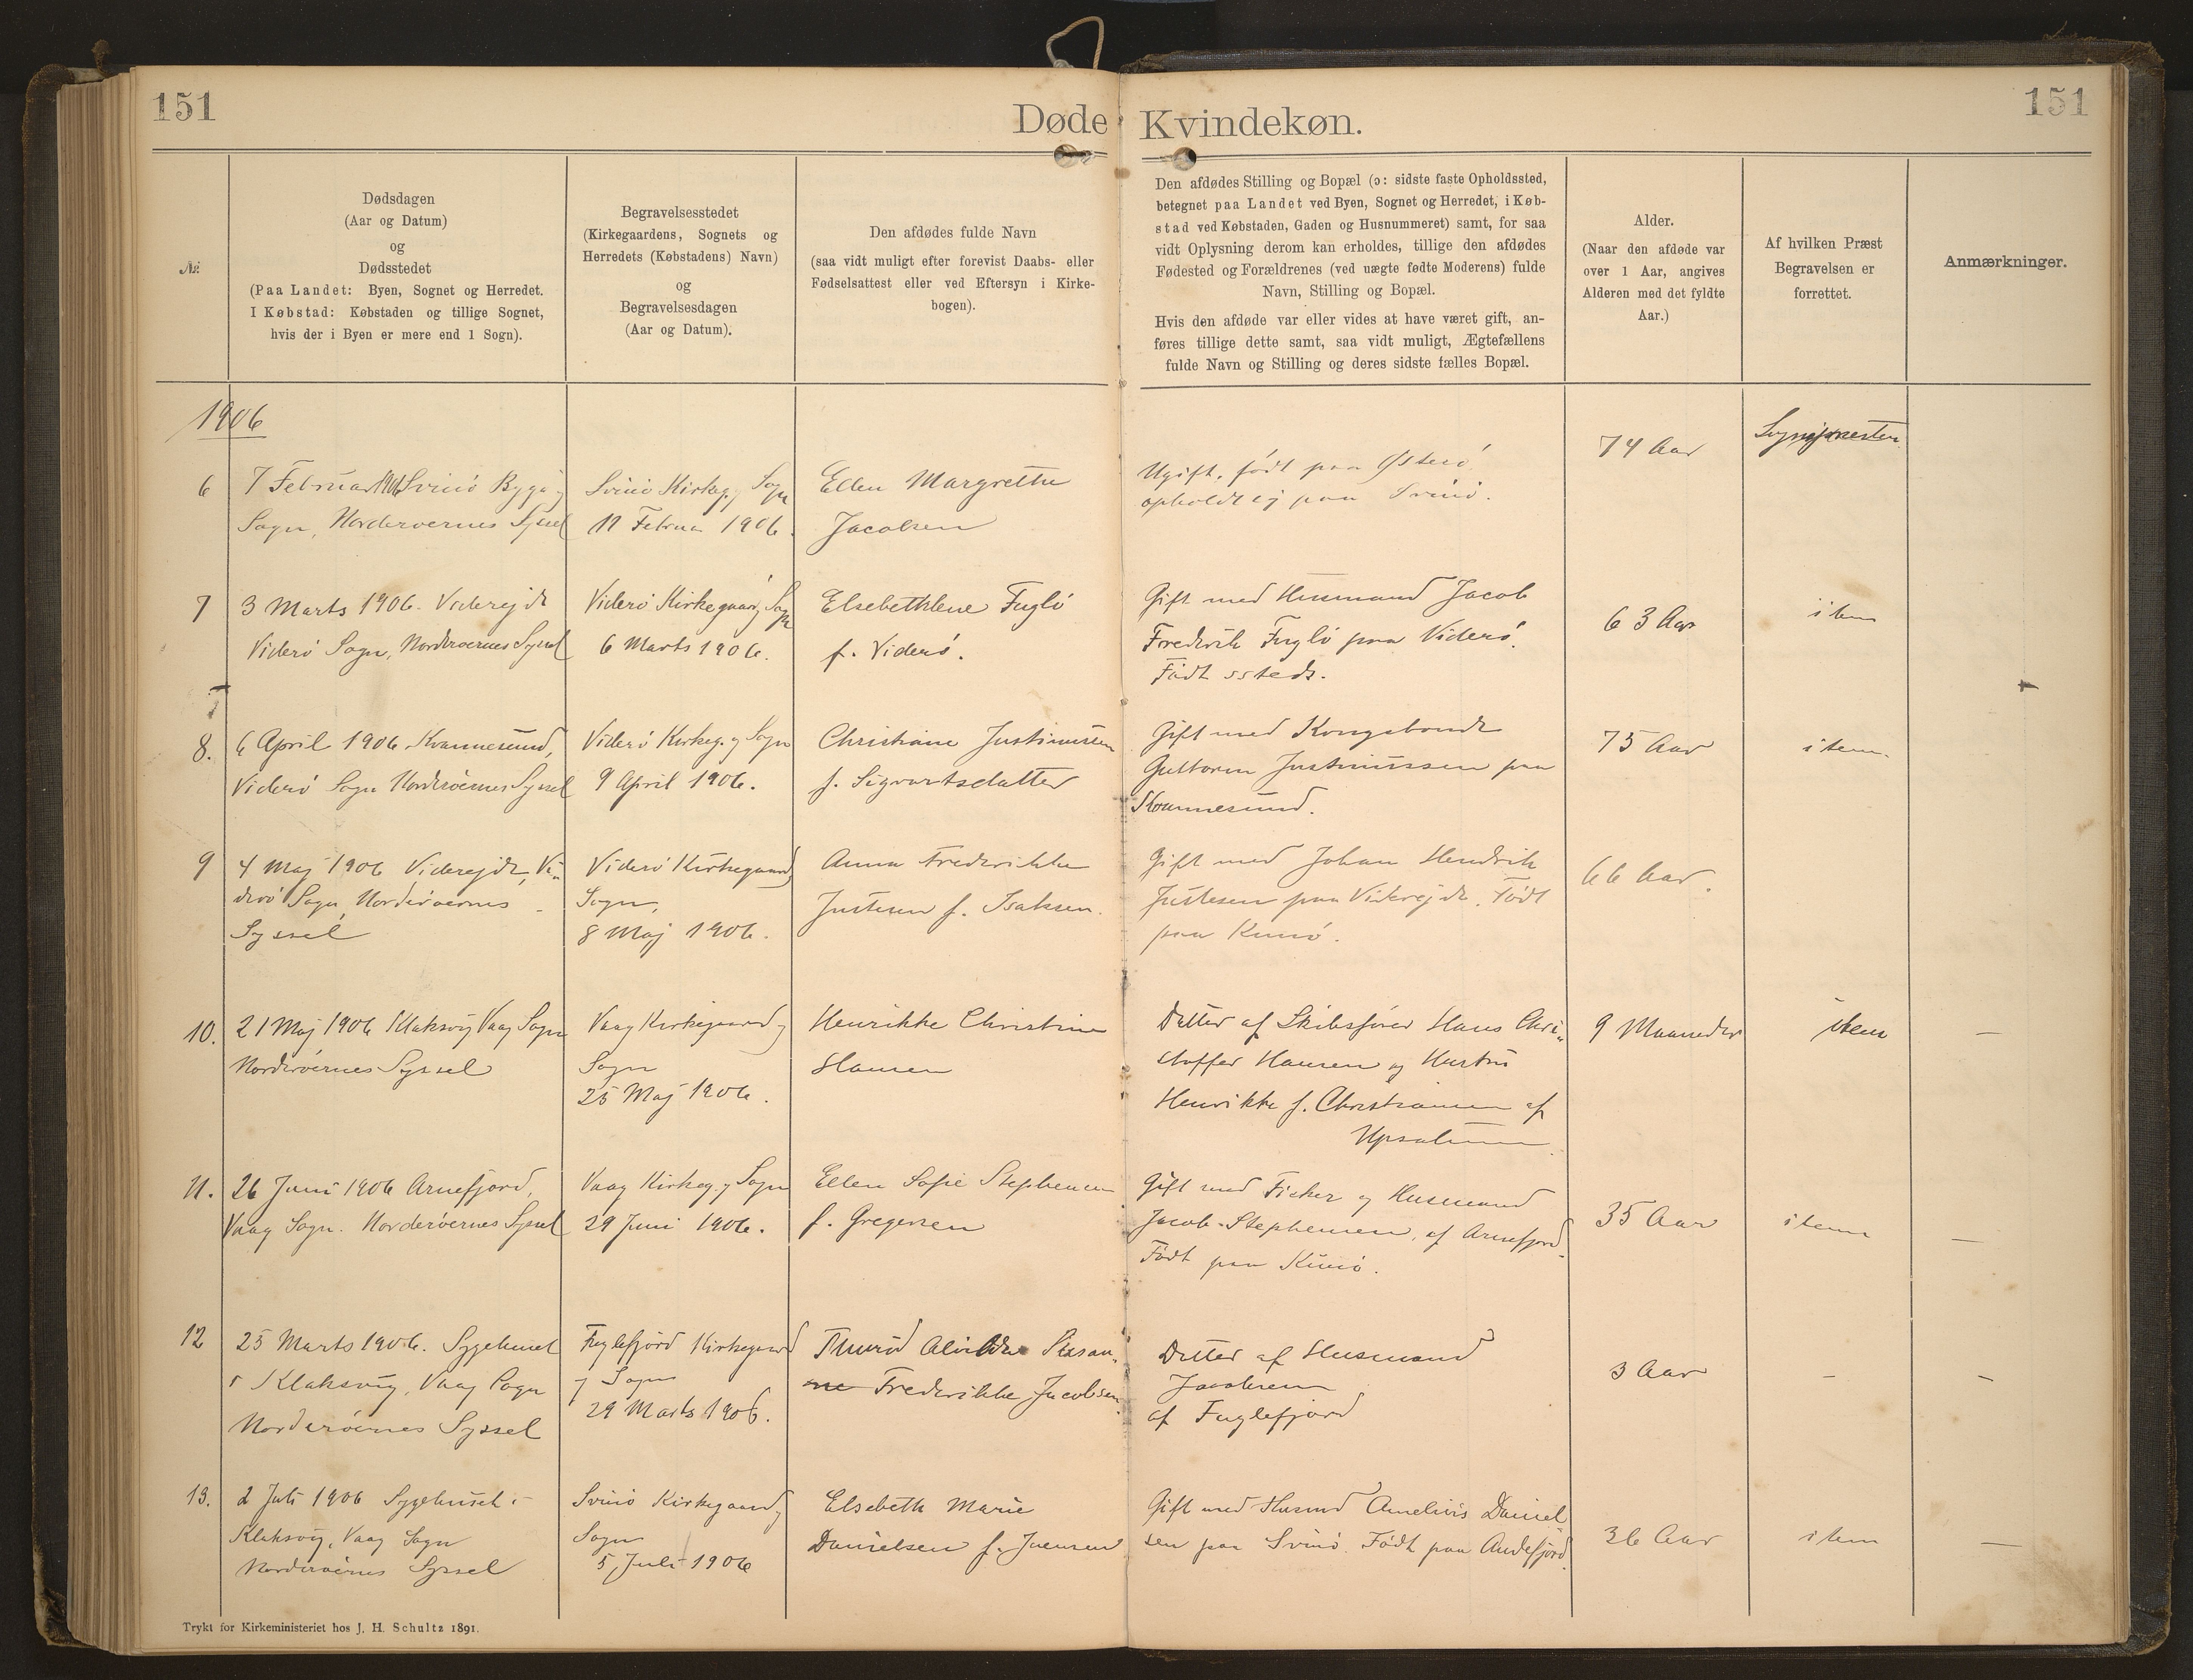 151
Døde Kvindekøn.
151
№
Dødsdagen
(Aar og Datum)
og
Dødsstedet
(Paa Landet: Byen, Sognet og Herredet.
I Købstad: Købstaden og tillige Sognet,
hvis der i Byen er mere end 1 Sogn).
Begravelsesstedet
(Kirkegaardens, Sognets og
Herredets (Købstadens) Navn)
og
Begravelsesdagen
(Aar og Datum).
Den afdødes fulde Navn
(saa vidt muligt efter forevist Daabs- eller
Fødselsattest eller ved Eftersyn i Kirke-
bogen).
Den afdødes Stilling og Bopæl (ɔ: sidste faste Opholdssted,
betegnet paa Landet ved Byen, Sognet og Herredet, i Køb-
stad ved Købstaden, Gaden og Husnummeret) samt, for saa
vidt Oplysning derom kan erholdes, tillige den afdødes
Fødested og Forældrenes (ved uægte fødte Moderens) fulde
Navn, Stilling og Bopæl.
Hvis den afdøde var eller vides at have været gift, an-
føres tillige dette samt, saa vidt muligt, Ægtefællens
fulde Navn og Stilling og deres sidste fælles Bopæl.
Alder.
(Naar den afdøde var
over 1 Aar, angives
Alderen med det fyldte
Aar.)
Af hvilken Præst
Begravelsen er
forrettet.
Anmærkninger.
1906
6
7 Februar 1906 Svinö Bygd og
Sogn, Norderöernes Syssel
Svinö Kirkeg. og Sogn
11 Februar 1906.
Ellen Margrethe
Jacobsen
Ugift, født paa Østerö
opholdt sig paa Svinö.
74 Aar
Sognepresten
7
3 Marts 1906. Viderejde
Viderö Sogn, Norderöernes Syssel
Viderö Kirkegaard, Sogn
6 Marts 1906.
Elsebethlene Fuglö
f. Viderö.
Gift med Husmand Jacob
Frederik Fuglö paa Viderö.
Födt ssteds.
63 Aar
item
8.
6 April 1906 Kvannesund,
Viderö Sogn Norderöernes Syssel
Viderö Kirkeg. og Sogn
9 April 1906.
Christiane Justinussen
f. Sigvartsdatter
Gift med Kongsbonde
Guttorm Justinussen paa
Kvannesund.
75 Aar
item
9
4 Maj 1906 Viderejde, Vi-
derö Sogn, Norderöernes
Syssel
Viderö Kirkegaard,
Sogn,
8 Maj 1906.
Anna Frederikke
Justesen f. Isaksen.
Gift med Johan Hendrik
Justesen paa Viderejde. Födt
paa Kunö.
66 Aar.
10.
21 Maj 1906 Klaksvig Vaag Sogn
Norderöernes Syssel
Vaag Kirkegaard og
Sogn
25 Maj 1906.
Henrikke Christine
Hansen
Datter af Skibsfører Hans Chri-
stoffer Hansen og Hustru
Henrikke f. Christiansen af
9 Maaneder
item
11.
26 Juni 1906 Arnefjord,
Vaag Sogn. Norderöernes Syssel
Vaag Kirkeg. og Sogn
29 Juni 1906.
Ellen Sofie Stephensen
f. Gregersen
Gift med Fisker og Husmand
Jacob Stephensen, af Arnefjord.
Födt paa Kunö.
35 Aar
item
12
25 Marts 1906. Sygehuset
i Klaksvig, Vaag Sogn
Norderöernes Syssel
Fuglefjord Kirkegaard
og Sogn
29 Marts 1906.
Thurid Alvilda Susan-
ne Frederikke Jacobsen.
Datter af Husmand
Jacobsen
af Fuglefjord
3 Aar
13.
2 Juli 1906 Sygehuset i
Klaksvig, Vaag Sogn
Norderöernes Syssel
Svinö Kirkegaard,
Sogn
5 Juli 1906
Elsebeth Marie
Danielsen f. Joensen
Gift med Husmd Daniel
sen paa Svinö. Födt paa Andefjord.
36 Aar
item
Trykt for Kirkeministeriet hos J. H. Schultz 1891.